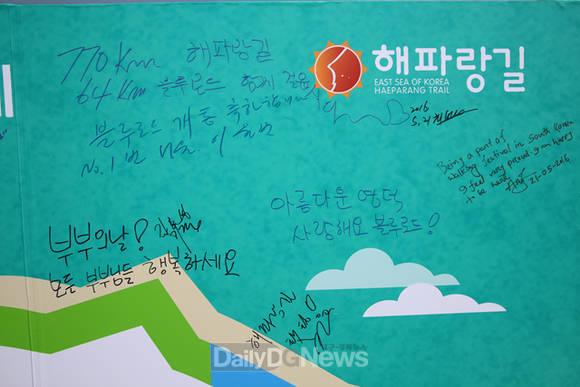 770km 해파랑길
64km 블루로드 함께 걸음
블루로드 개통 축하합니다
No.1 번 나눔. 이
해파랑길
EAST SEA OF KOREA
HAEPARANG TRAIL
2016
5.21
Being a part of
walking festival in South Korea
I feel very proud. I am happy
to be here
21-05-2016
아름다운 영덕
사랑해요 블루로드!
부부의날!
모든 부부님들 행복하세요
해파랑길
DailyDGNews